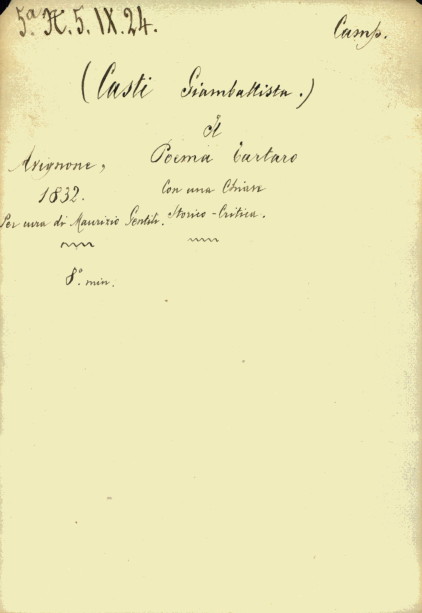 5ª A. 5. IX. 24.
Camp.
(Casti Giambattista.)
Il
Poema Tartaro
Con una Chiave
Storico-Critica.
Avignone,
1832.
Per cura di Maurizio Gentili.
8.° min.